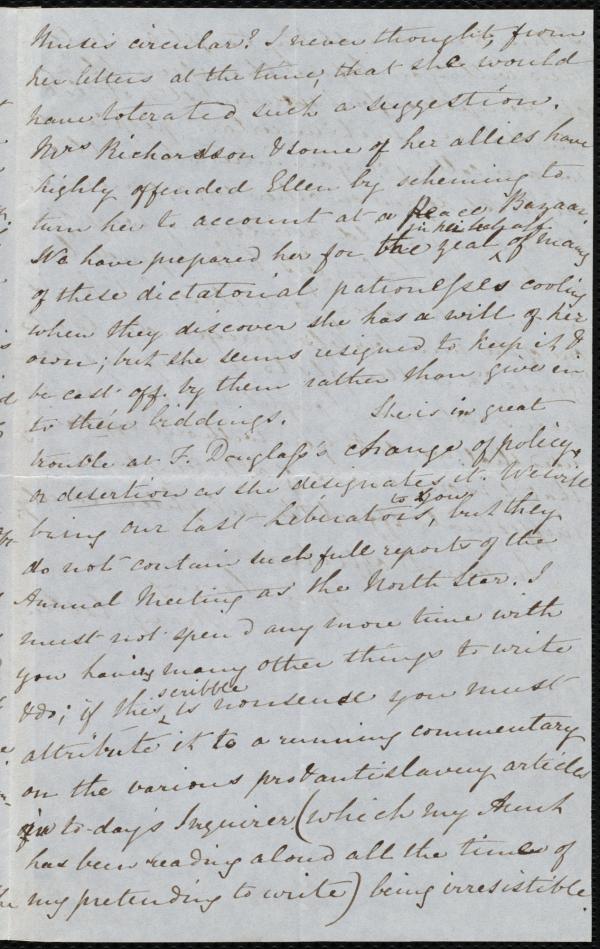 circular? I never thought, from
her letters at the time, that she would
have tolerated such a suggestion.
Mrs Richardson & some of her allies have
highly offended Ellen by scheming to
turn her to account at a Peace Bazaar.
in her behalf
We have prepared her for the zeal ^ of many
of these dictatorial patronesses cooling
when they discover she has a will of her
own; but she seems resigned to keep it &
be cast off by them rather than give in
to their biddings. She is in great
trouble at F. Douglass's change of policy,
or desertion as she designates it. We will
to you
bring our last Liberators, but they
do not contain such full reports of the
Annual Meeting as the North Star. I
must not spend any more time with
you having many other things to write
scribble
& do; if this ^ is nonsense you must
attribute it to a running commentary
on the various pro & antislavery articles
in to-day's Inquirer (which my Aunt
has been reading aloud all the time of
my pretending to write) being irresistible.